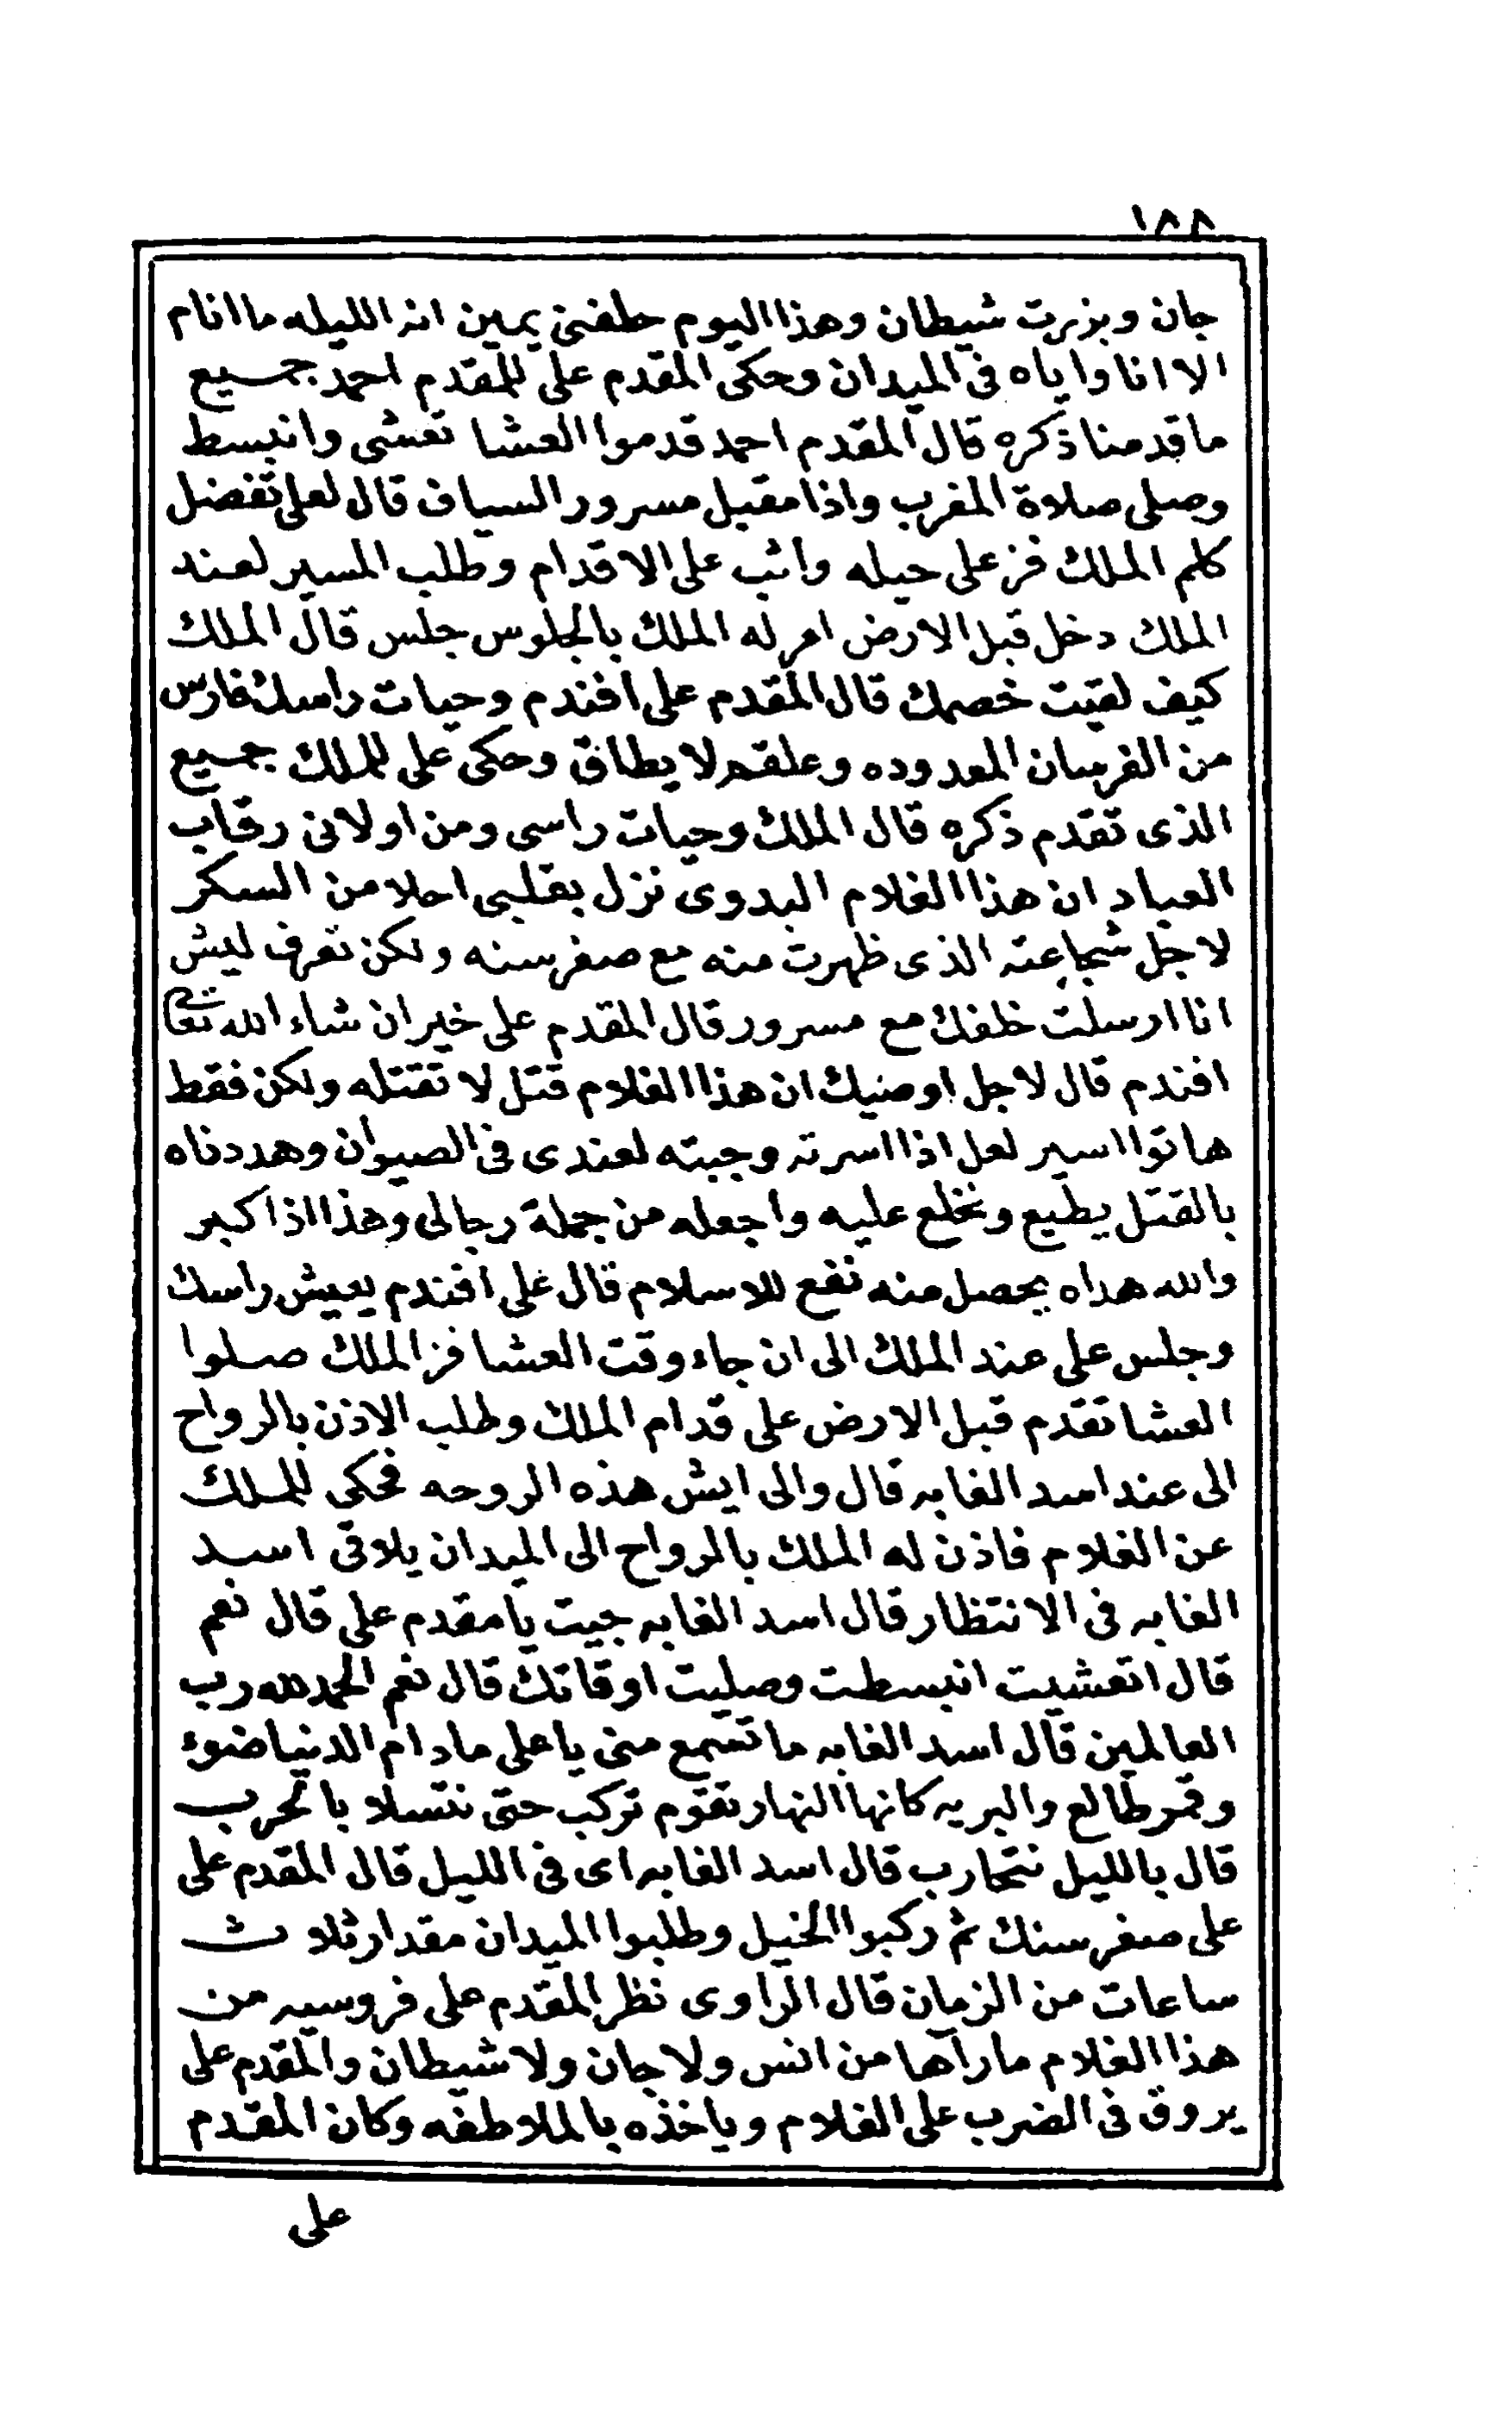 ١٨٨
جان وبزرت شيطان وهذا اليوم حلفنى يمين انه الليله ما انام
الا انا واياه فى الميدان وحكى المقدم على للمقدم احمد جميع
ما قدمنا ذكره قال المقدم احمد قدموا العشا تعشى وانبسط
وصلى صلاة المغرب واذا مقبل مسرور السياف قال لعلى تفضل
كلم الملك فز على حيله واثب على الاقدام وطلب المسير لعند
الملك دخل قبل الارض امر له الملك بالجلوس جلس قال الملك
كيف لقيت خصمك قال المقدم على افندم وحيات راسك فارس
من الفرسان المعدوده وعلقم لا يطاق وحكى على للملك جميع
الذى تقدم ذكره قال الملك وحيات راسى ومن اولانى رقاب
العباد ان هذا الغلام البدوى نزل بقلبى احلا من السكر
لاجل شجاعته الذى ظهرت منه مع صغر سنه ولكن تعرف ليش
انا ارسلت خلفك مع مسرور قال المقدم على خير ان شاء الله تعالى
افندم قال لاجل اوصيك ان هذا الغلام قتل لا تقتله ولكن فقط
هاتوا اسير لعل اذا اسرته وجبته لعندى فى الصيوان وهددناه
بالقتل يطيع ونخلع عليه واجعله من جملة رجالى وهذا اذا كبر
والله هداه يحصل منه نفع للاسلام قال على افندم يعيش راسك
وجلس على عند الملك الى ان جاء وقت العشا فز الملك صلوا
العشا تقدم قبل الارض على قدام الملك وطلب الاذن بالرواح
الى عند اسد الغابه قال والى ايش هذه الروحه فحكى للملك
عن الغلام فاذن له الملك بالرواح الى الميدان يلاقى اسد
الغابه فى الانتظار قال اسد الغابه جيت يا مقدم على قال نعم
قال اتعشيت انبسطت وصليت اوقاتك قال نعم الحمد لله رب
العالمين قال اسد الغابه ما تسمع منى يا على مادام الدنيا ضوء
وقمر طالع والبريه كانها النهار تقوم تركب حتى نتسلا بالحرب
قال بالليل نتحارب قال اسد الغابه اى فى الليل قال المقدم على
على صغر سنك ثم ركبوا الخيل وطلبوا الميدان مقدار ثلاث
ساعات من الزمان قال الراوى نظر المقدم على فروسيه من
هذا الغلام ما رآها من انس ولا جان ولا شيطان والمقدم على
يروق فى الضرب على الغلام وياخذه بالملاطفه وكان المقدم
على